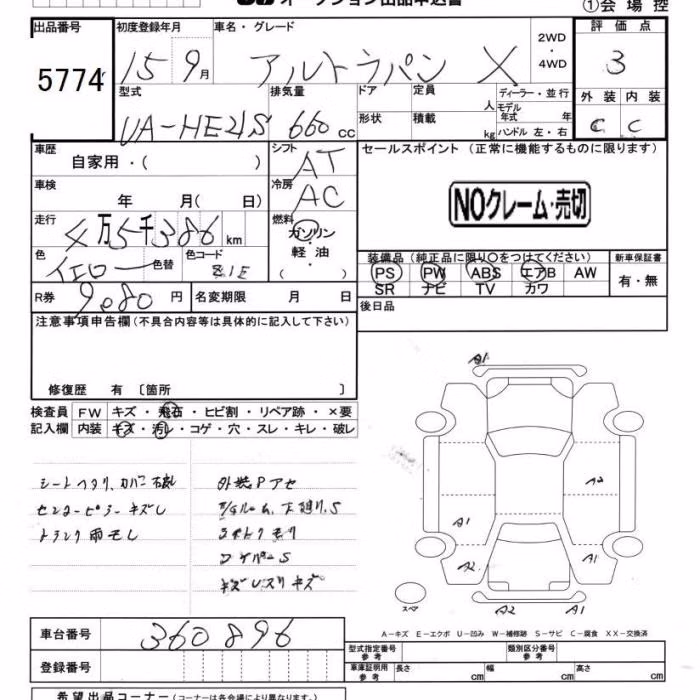 オークション出品申込書 ①会場控
出品番号 初度登録年月 車名・グレード 2WD・4WD 評価点
5774 15 9月 アルトラパン X 3
型式 排気量 ドア 定員 人 ディーラー・並行 外装 内装
UA-HE21S 660cc 形状 積載 kg モデル年式 年 ハンドル 左・右 C C
車歴 自家用・( ) シフト AT セールスポイント (正常に機能するものに限ります)
車検 年 月( 日) 冷房 AC NOクレーム・売切
走行 4万5千386km 燃料 ガソリン・軽油・( )
色 イエロー 色替 色コード 装備品 (純正品に限り○をつけてください) 新車保証書
PS PW ABS エアB AW 有・無
SR ナビ TV カワ
R券 9080円 名変期限 月 日 後日品
注意事項申告欄(不具合内容等は具体的に記入して下さい)
修復歴 有 〔箇所 〕
検査員 FW キズ・飛石・ヒビ割・リペア跡・×要
記入欄 内装 キズ・汚レ・コゲ・穴・スレ・キレ・破レ
シートヘタリ、カバー破レ
センターピラーキズレ
トランク雨モレ
外装Pアセ
下廻り、S
ワイパーS
キズ
A1
A2
A1
A2
A1
スペア
A2
A1
A-キズ E-エクボ U-凹み W-補修跡 S-サビ C-腐食 XX-交換済
車台番号 360896
登録番号
型式指定番号 参考 類別区分番号 参考
車庫証明用 参考 長さ cm 幅 cm 高さ cm
希望出品コーナー(コーナーは各会場により異なります。)